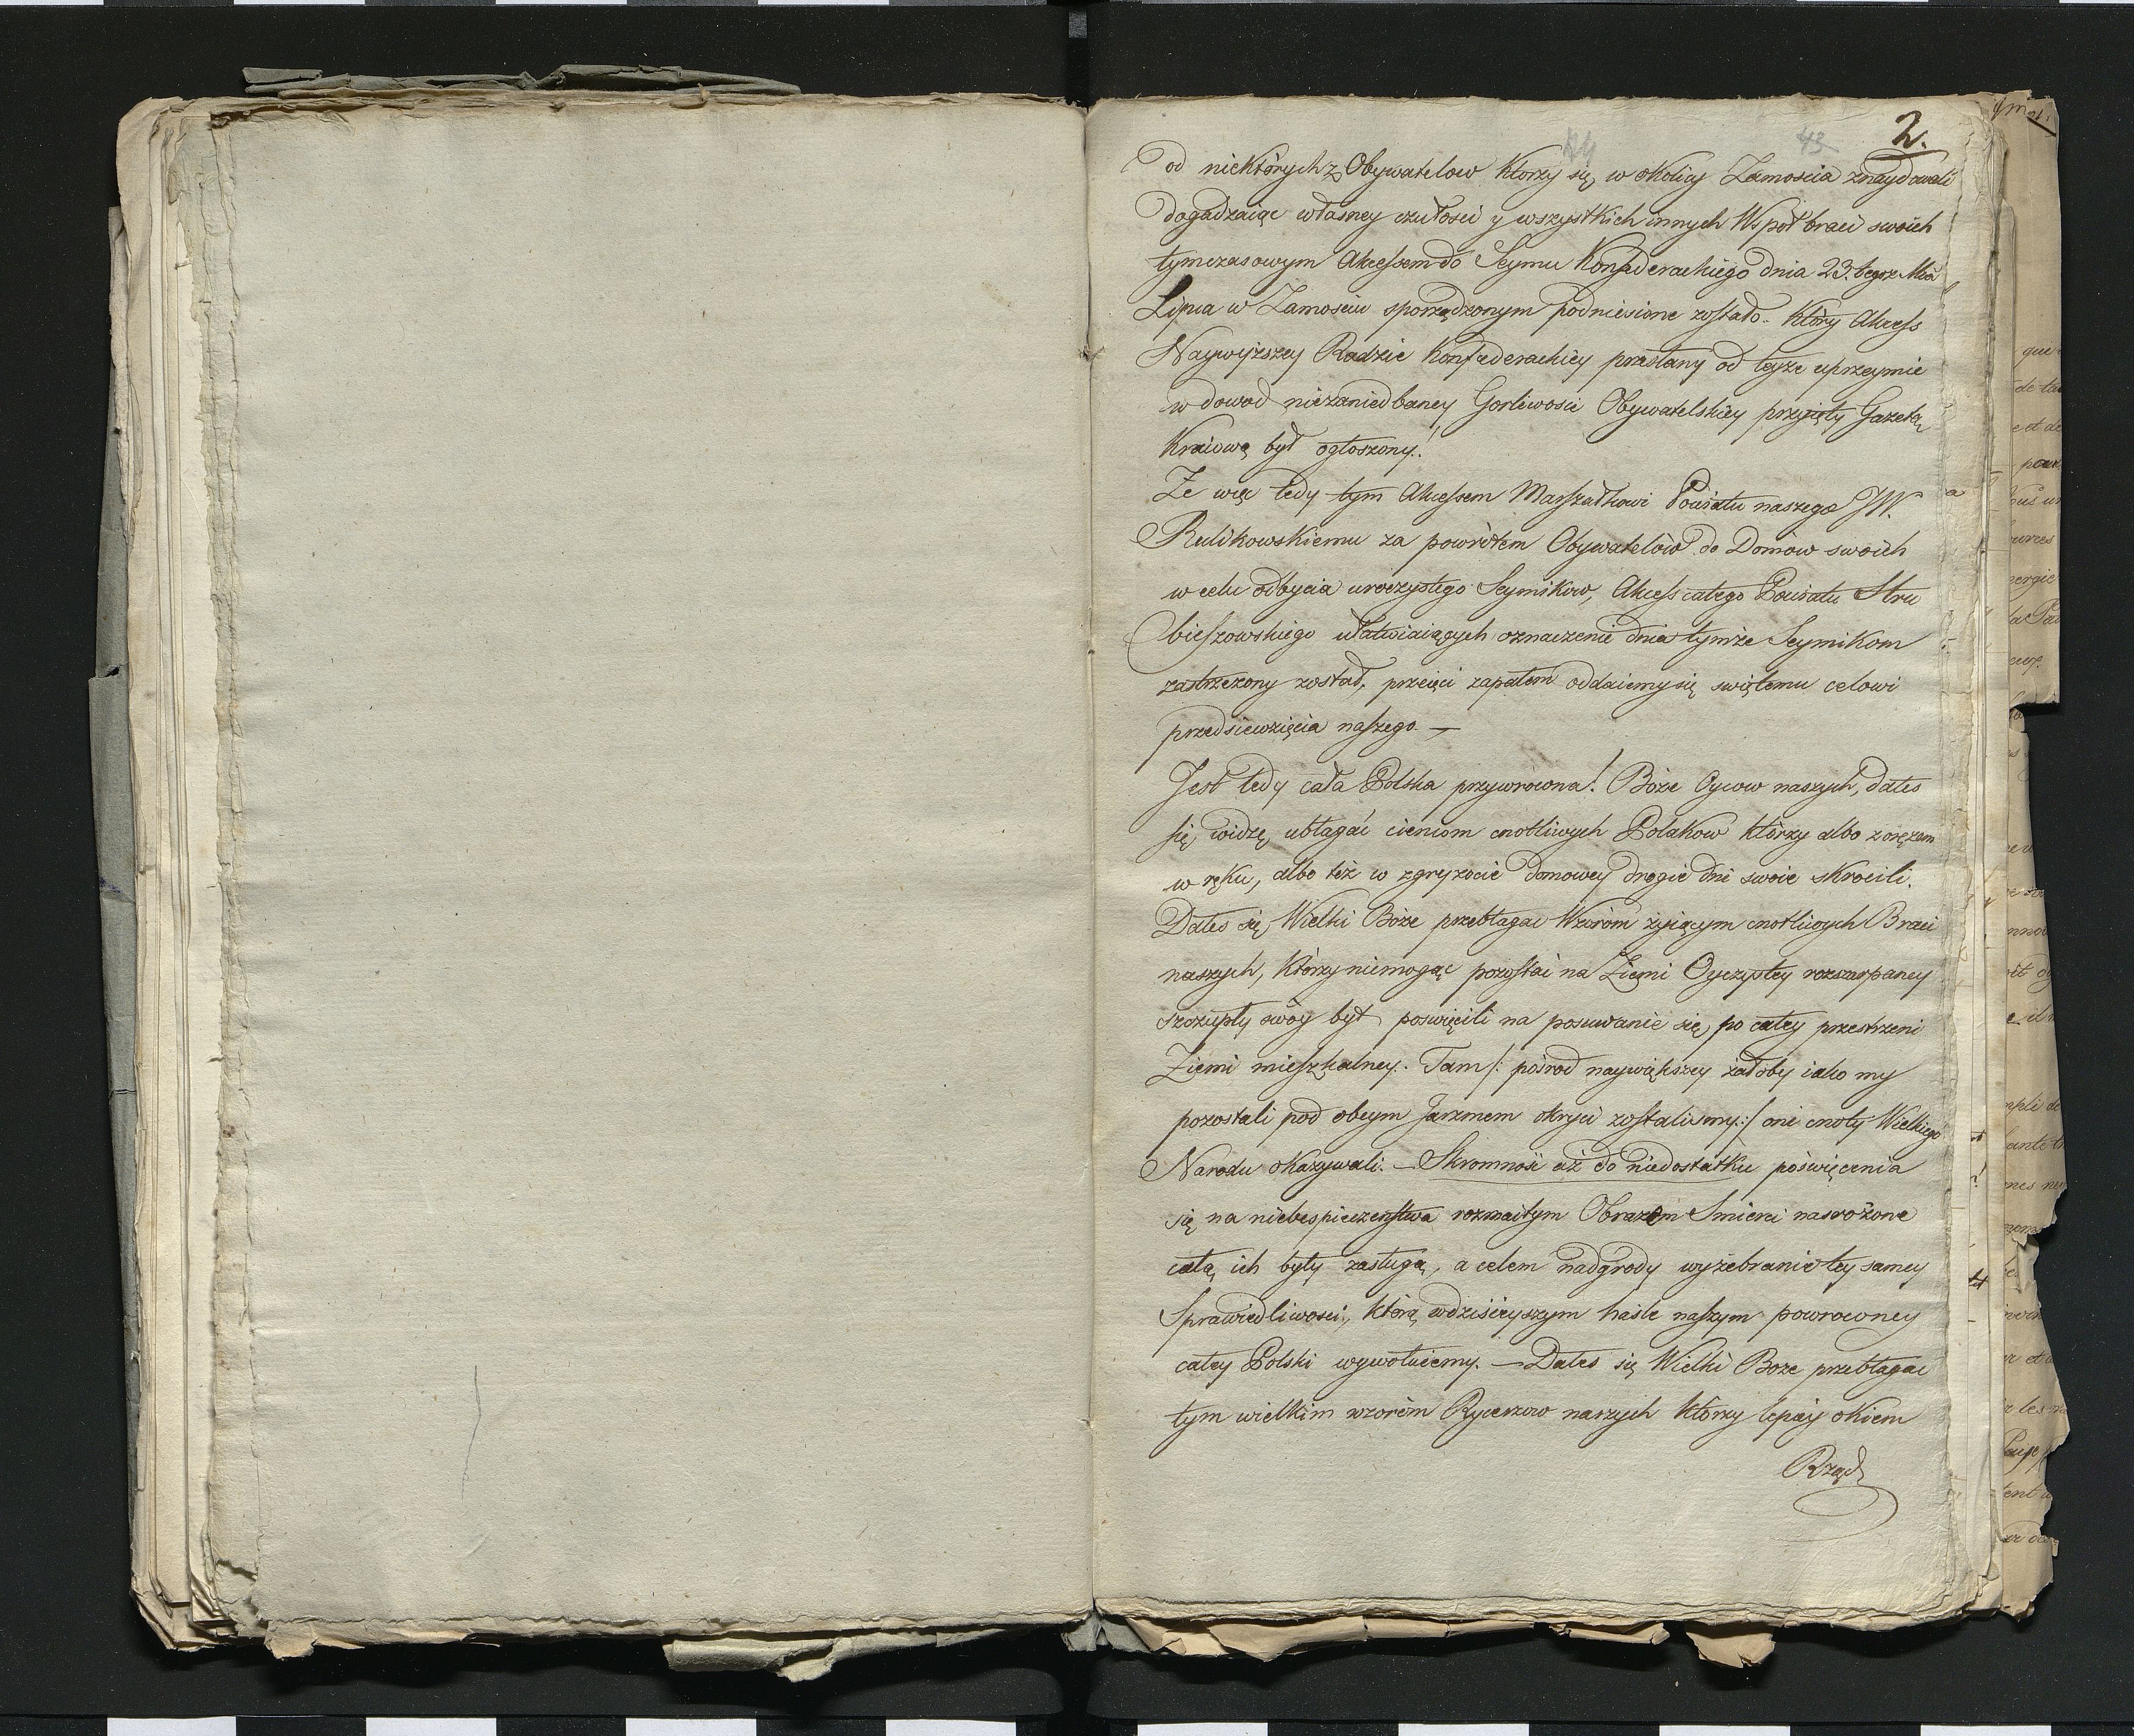 2.
43
44
od niektórych z Obywatelow ktorzy się w okolicy Zamoscia znaydowali
dogadzaiąc własney czułosci y wszystkich innych Współbraci swoich
tymczasowym Akcessem do Seymu Konfederackiego dnia 23. tegoż Mca
Lipca w Zamosciu sporządzonym podniesione zostało. który Akcess
Naywyższey Radzie Konfederackiey przesłany od teyże uprzeymie
w dowod niezaniedbaney Gorliwosci Obywatelskiey przyięty Gazetą
Kraiową był ogłoszony!
Ze więc tedy tym Akcessem Marszałkowi Powiatu naszego JW.
Rulikowskiemu za powrótem Obywatelów do Domow swoich
w celu odbycia uroczystego Seymikow, Akcess całego Powiatu Hru
bieszowskiego ułatwiaiących oznaczenie dnia tymże Seymikom
zastrzeżony został, przeięci zapałem oddaiemy się swiętemu celowi
przedsiewzięcia naszego. —
Jest tedy cała Polska przywrócona! Boże Oycow naszych, dałes
się widzę ubłagać cieniom cnotliwych Polakow którzy albo z orężem
w ręku, albo też w zgryzocie domowey drogie dni swoie skrocili.
Dałes się Wielki Boże przebłagac Wzorom żyiącym cnotliwych Braci
naszych, którzy niemogąc pozostać na Ziemi Oyczystey rozszarpaney
szczupły swóy byt poswięcili na posuwanie się po całey przestrzeni
Ziemi mieszkalney. Tam /: pośrod naywiększey żałoby iako my
pozostali pod obcym Jarzmem okryci zostalismy :/ oni cnoty Wielkiego
Narodu okazywali. — Skromność aż do niedostatku poświęcenia
się na niebespieczeństwa rozmaitym Obrazem Smierci nasrożone
całą ich były zasługą, a celem nadgrody wyżebranie tey samey
Sprawiedliwosci, którą wdzisieyszym haśle naszym powroconey
całey Polski wywołuiemy. — Dałes się Wielki Boże przebłagac
tym wielkim wzorem Rycerzow naszych którzy lepiey okiem
Rząd